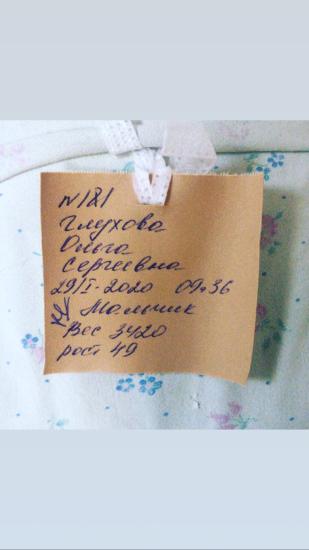 N181
Глухова
Ольга
Сергеевна
29/I-2020 09ч36
Мальчик
Вес 3420
рост 49